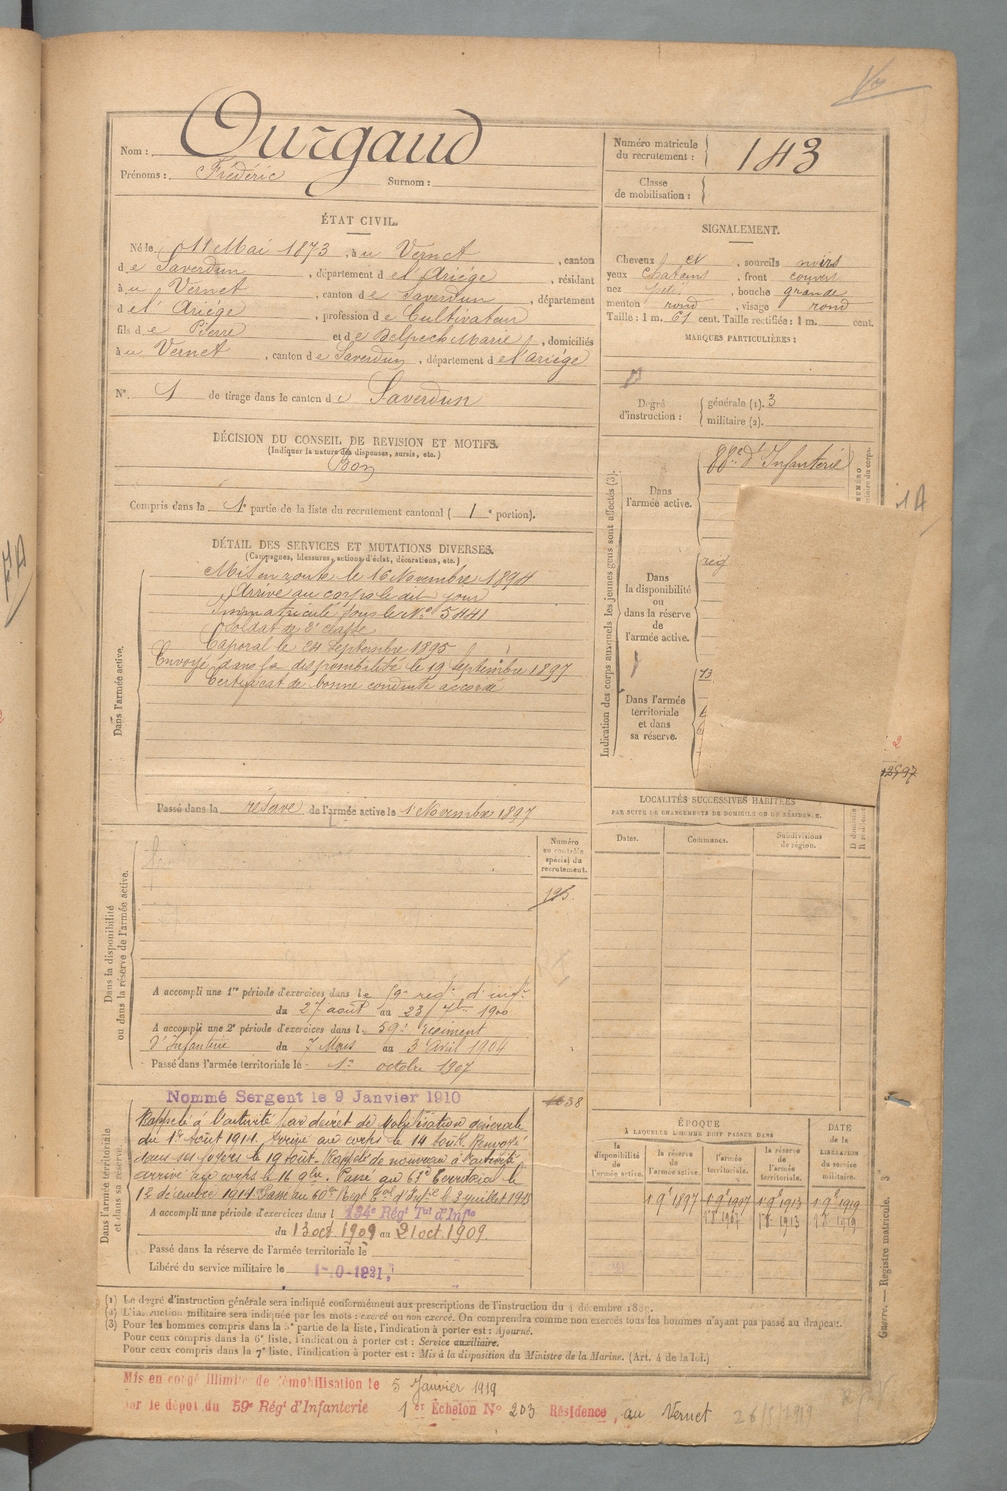 Nom : Ourgaud
Prénoms : Frédéric Surnom :
Numéro matricule du recrutement : 143
Classe de mobilisation :
ÉTAT CIVIL.
Né le 11 Mai 1873, à u Vernet, canton
d e Saverdun, département d e l'Ariège, résidant
à u Vernet, canton d e Saverdun, département
d e l'Ariège, profession d e Cultivateur
fils d e Pierre et d e Delpech Marie, domiciliés
à u Vernet, canton d e Saverdun, département d e l'Ariège
N° 1 de tirage dans le canton d e Saverdun
SIGNALEMENT.
Cheveux et, sourcils noirs
yeux chatains, front couvert
nez, bouche grande
menton rond, visage rond
Taille : 1 m. 61 cent. Taille rectifiée : 1 m. cent.
MARQUES PARTICULIÈRES :
Degré d'instruction : générale (1). 3
militaire (2).
DÉCISION DU CONSEIL DE REVISION ET MOTIFS.
(Indiquer la nature des dispenses, sursis, etc.)
Bon
Compris dans la 1e partie de la liste du recrutement cantonal ( 1e portion).
DÉTAIL DES SERVICES ET MUTATIONS DIVERSES.
(Campagnes, blessures, actions d'éclat, décorations, etc.)
Dans l'armée active.
Mis en route le 16 Novembre 1894
Arrivé au corps le dit jour
Immatriculé sous le N° 5441
Soldat de 2e classe
Caporal le 24 Septembre 1895
Envoyé dans la disponibilité le 19 Septembre 1897
Certificat de bonne conduite accordé
Passé dans la réserve de l'armée active le 1 Novembre 1897
Indication des corps auxquels les jeunes gens sont affectés (3).
Dans l'armée active.
88e d'Infanterie
Dans la disponibilité ou dans la réserve de l'armée active.
Dans l'armée territoriale et dans sa réserve.
LOCALITÉS SUCCESSIVES HABITÉES
PAR SUITE DE CHANGEMENTS DE DOMICILE OU DE RÉSIDENCE.
Dates. Communes. Subdivisions de région.
Numéro au contrôle spécial du recrutement.
195
Dans la disponibilité ou dans la réserve de l'armée active.
A accompli une 1re période d'exercices dans le 59e reg.t d'inf.ie
du 27 août au 23 7bre 1900
A accompli une 2e période d'exercices dans l 59e régiment
d'Infanterie du 7 Mars au 3 Avril 1904
Passé dans l'armée territoriale le 1er octobre 1907
Dans l'armée territoriale et dans sa réserve.
Nommé Sergent le 9 Janvier 1910
38
Rappelé à l'activité par décret de Mobilisation générale
du 1er Août 1914. Arrivé au corps le 14 août. Renvoyé
dans ses foyers le 19 août. Rappelé de nouveau à l'activité
arrivé au corps le 16 9bre. Passé au 61e Territorial le
12 décembre 1914. Passé au 60e Regt Tor d'Infie le 2 juillet 1915
A accompli une période d'exercices dans l 134e Régt Tal d'Infie
du 13 oct. 1909 au 21 oct. 1909.
Passé dans la réserve de l'armée territoriale le
Libéré du service militaire le
ÉPOQUE
À LAQUELLE L'HOMME DOIT PASSER DANS
la disponibilité de l'armée active. la réserve de l'armée active. l'armée territoriale. la réserve de l'armée territoriale.
DATE de la LIBÉRATION du service militaire.
Guerre. — Registre matricule. 3
(1) Le degré d'instruction générale sera indiqué conformément aux prescriptions de l'instruction du 4 décembre 1889.
(2) L'instruction militaire sera indiquée par les mots : exercé ou non exercé. On comprendra comme non exercés tous les hommes n'ayant pas passé au drapeau.
(3) Pour les hommes compris dans la 5e partie de la liste, l'indication à porter est : Ajourné.
Pour ceux compris dans la 6e liste, l'indication à porter est : Service auxiliaire.
Pour ceux compris dans la 7e liste, l'indication à porter est : Mis à la disposition du Ministre de la Marine. (Art. 4 de la loi.)
Mis en congé illimité de démobilisation le 5 Janvier 1919
par le dépot du 59e Régt d'Infanterie 1er Echelon N° 203 Résidence, au Vernet 26/5/1919